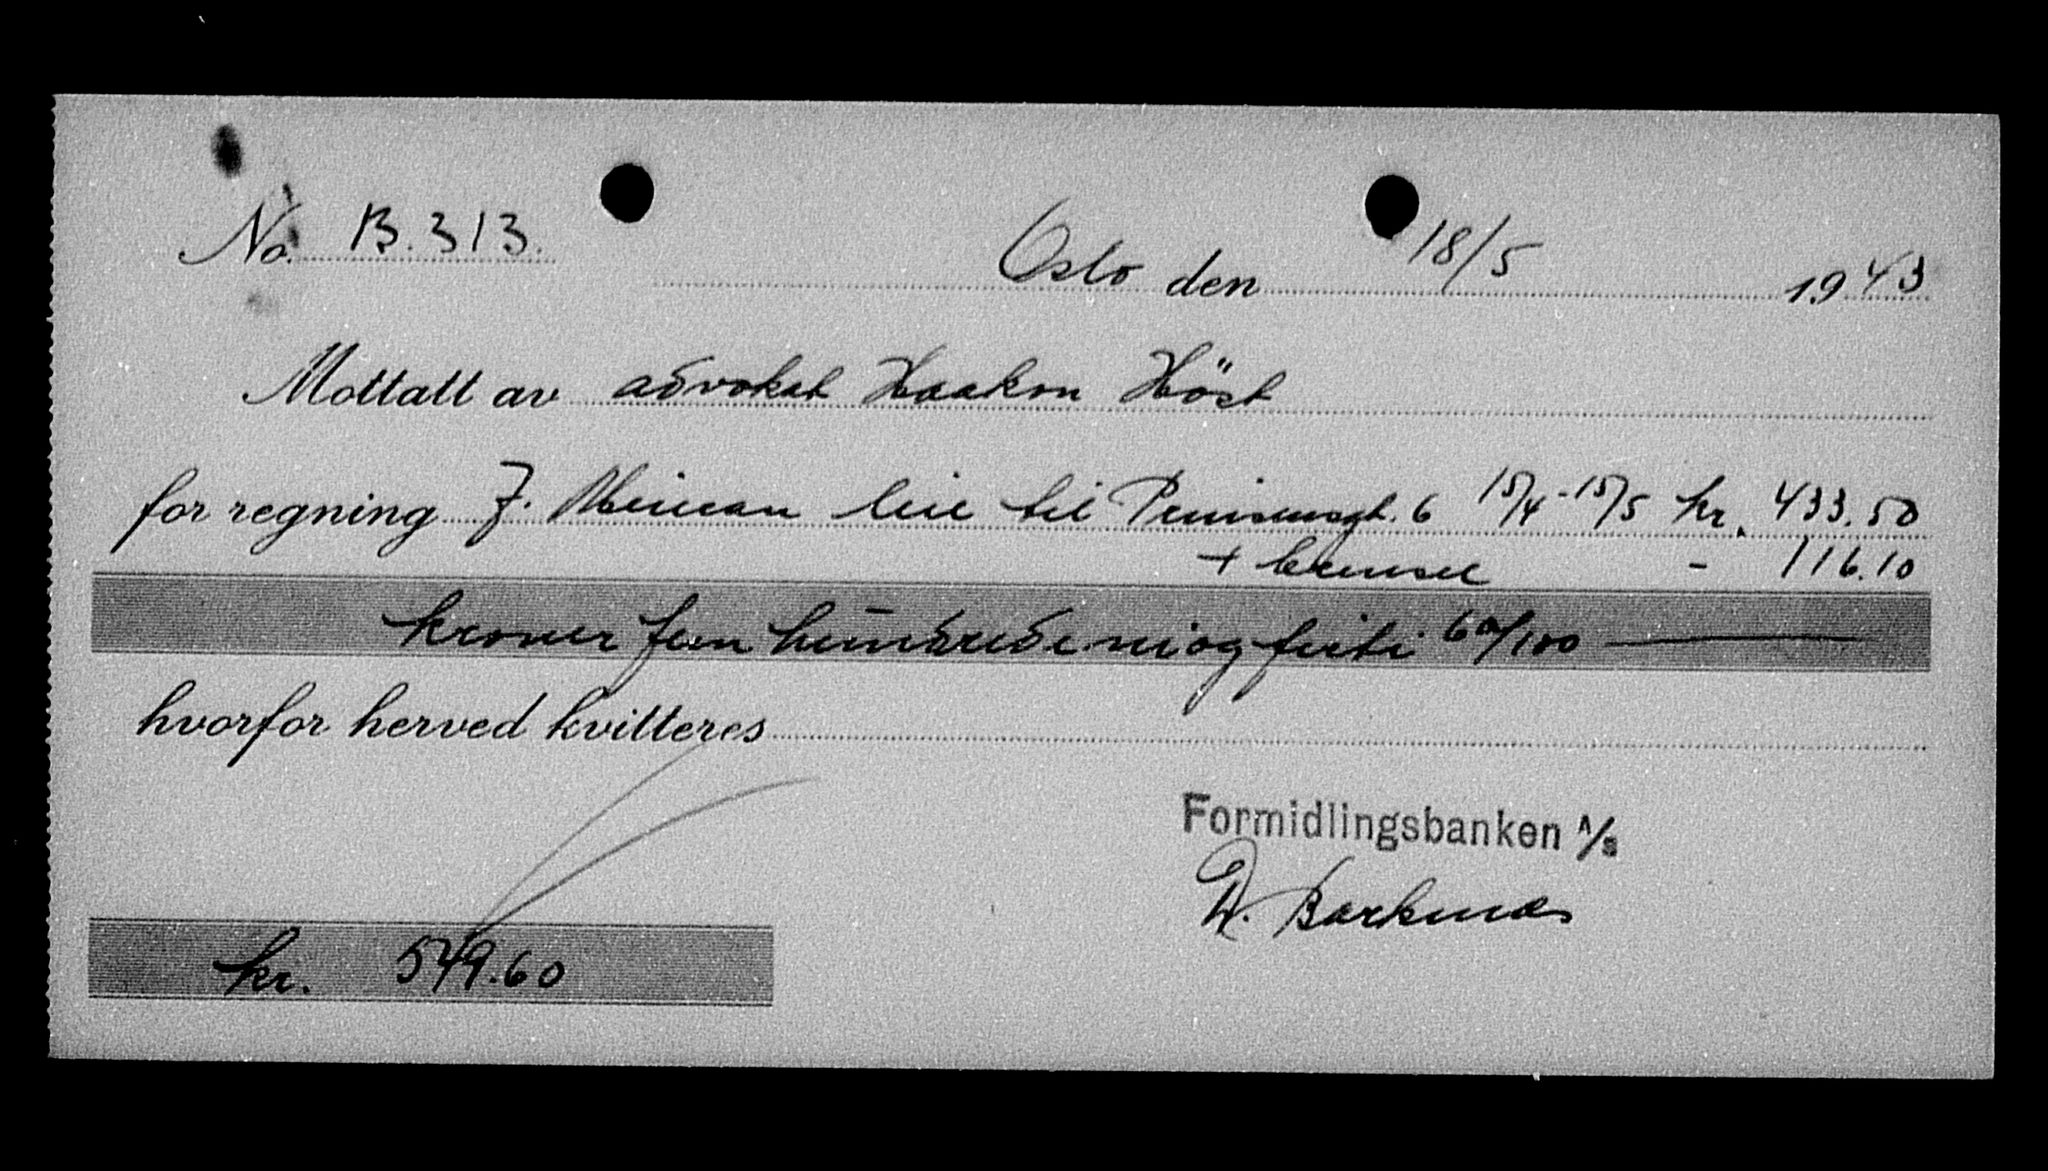 No. B. 313.
Oslo den 18/5 1943
Mottatt av advokat Haakon Höst
for regning J. Meieran leie til Prinsensgt. 6 15/4 - 15/5 kr. 433.50
+ brensel - 116.10
kroner fem hundrede ni og firti 60/100
hvorfor herved kvitteres
Formidlingsbanken A/S
kr. 549.60